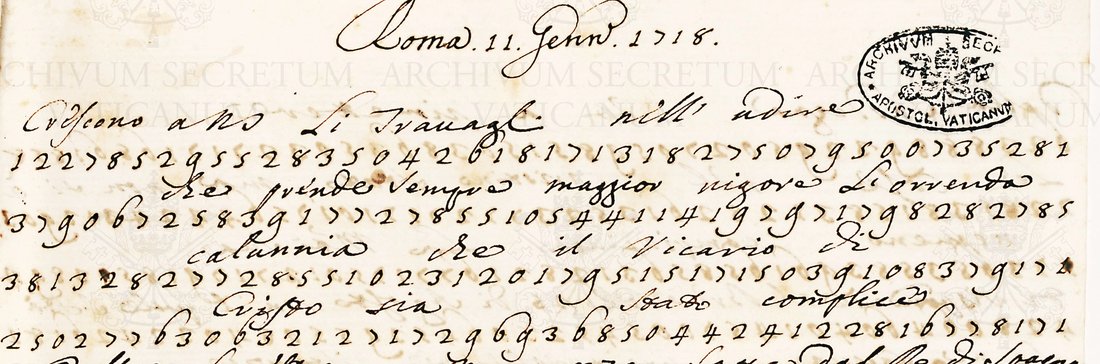 Roma. 11. Genn.º 1718.
ARCHIVUM SECRETUM APOSTOL. VATICANUM
Crescono a li Travagli nell' udire
1 2 2 7 8 5 2 9 5 5 2 8 3 5 0 4 2 6 1 8 1 7 1 3 1 8 2 7 5 0 7 9 5 0 0 7 3 5 2 8 1
che prende sempre maggior vigore l'orrenda
3 7 9 0 6 7 2 5 8 3 9 1 7 7 2 7 8 5 5 1 0 5 4 4 1 1 4 1 9 7 9 7 1 7 9 8 2 8 2 7 8 5
calunnia che il Vicario di
3 8 1 3 2 8 2 7 7 2 8 5 5 1 0 2 3 1 2 0 1 7 9 5 1 5 1 7 1 5 0 3 9 1 0 8 3 7 9 1 7 1
Cristo sia stato complice
2 5 0 2 7 7 6 3 0 6 3 2 1 2 7 1 7 2 9 6 9 3 6 8 5 0 4 4 2 4 1 2 2 8 1 6 7 7 8 1 7 1